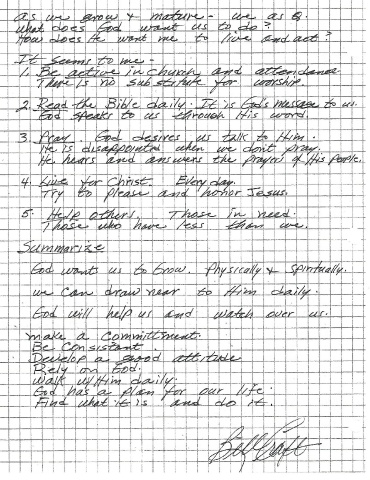 as we grow & mature - we as Q.
what does God want us to do?
How does He want me to live and act?
It seems to me -
1. Be active in church and attendance.
There is no substitute for worship.
2. Read the Bible daily. It is God's message to us.
God speaks to us through His word.
3. Pray. God desires us talk to Him.
He is disappointed when we don't pray.
He hears and answers the prayers of His people.
4. Live for Christ. Every day.
Try to please and honor Jesus.
5. Help others. Those in need.
Those who have less than we.
Summarize
God wants us to Grow. Physically & Spiritually.
we can draw near to Him daily.
God will help us and watch over us.
make a Committment.
Be Consistant
Develop a good attitude
Rely on God.
Walk w/Him daily.
God has a plan for our life.
Find what it is and do it.
Bill Craft